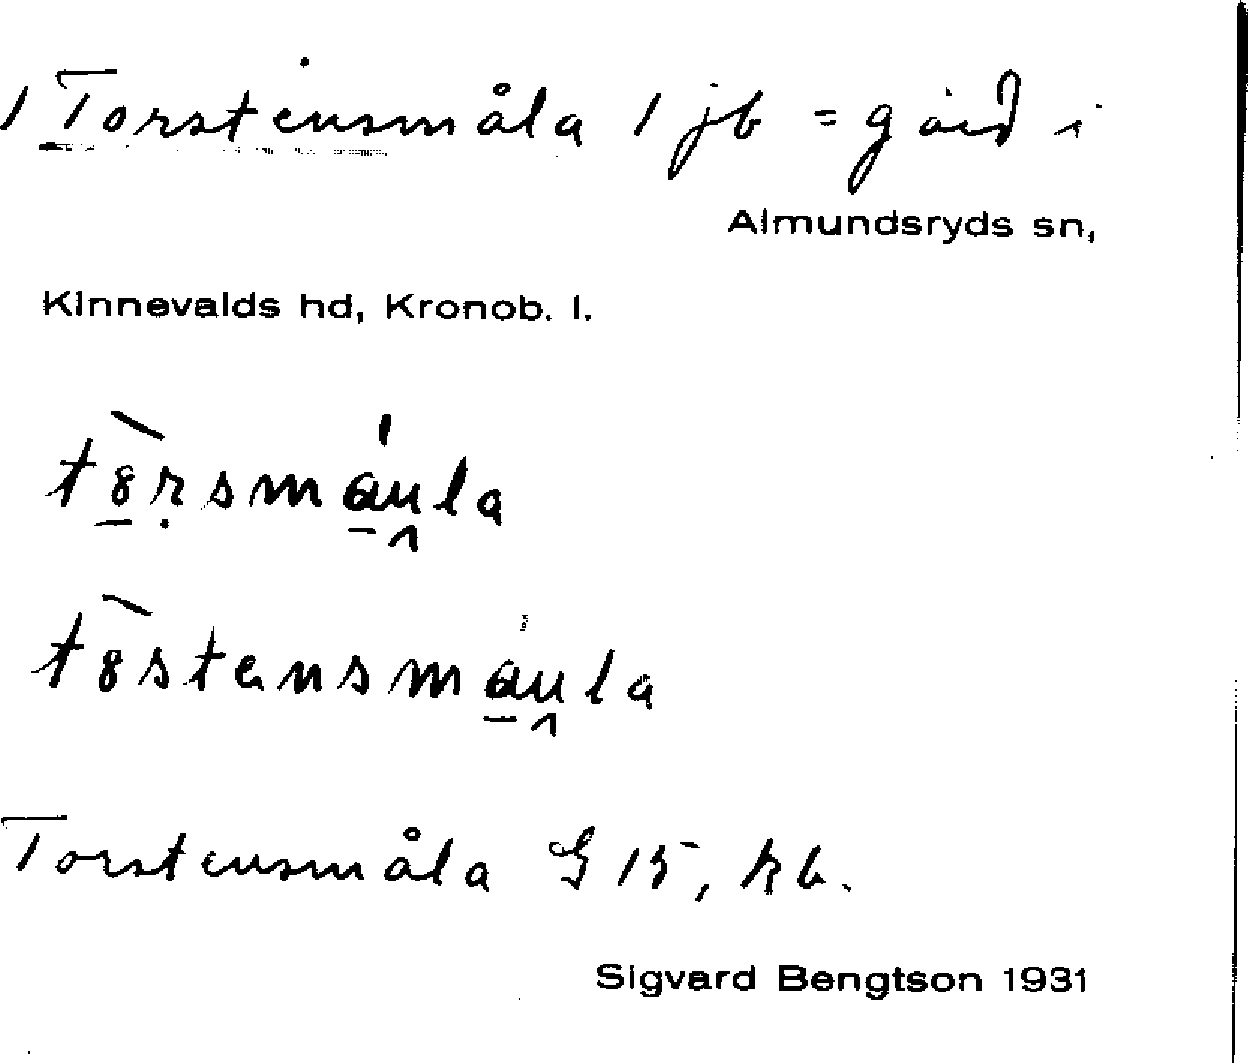 / Torstensmåla / jb = gård i
Almundsryds sn,
Kinnevalds hd, Kronob. l.
tȣ̀rsmáula
tȣ̀stensmáula
Torstensmåla G 15, kb.
Sigvard Bengtson 1931